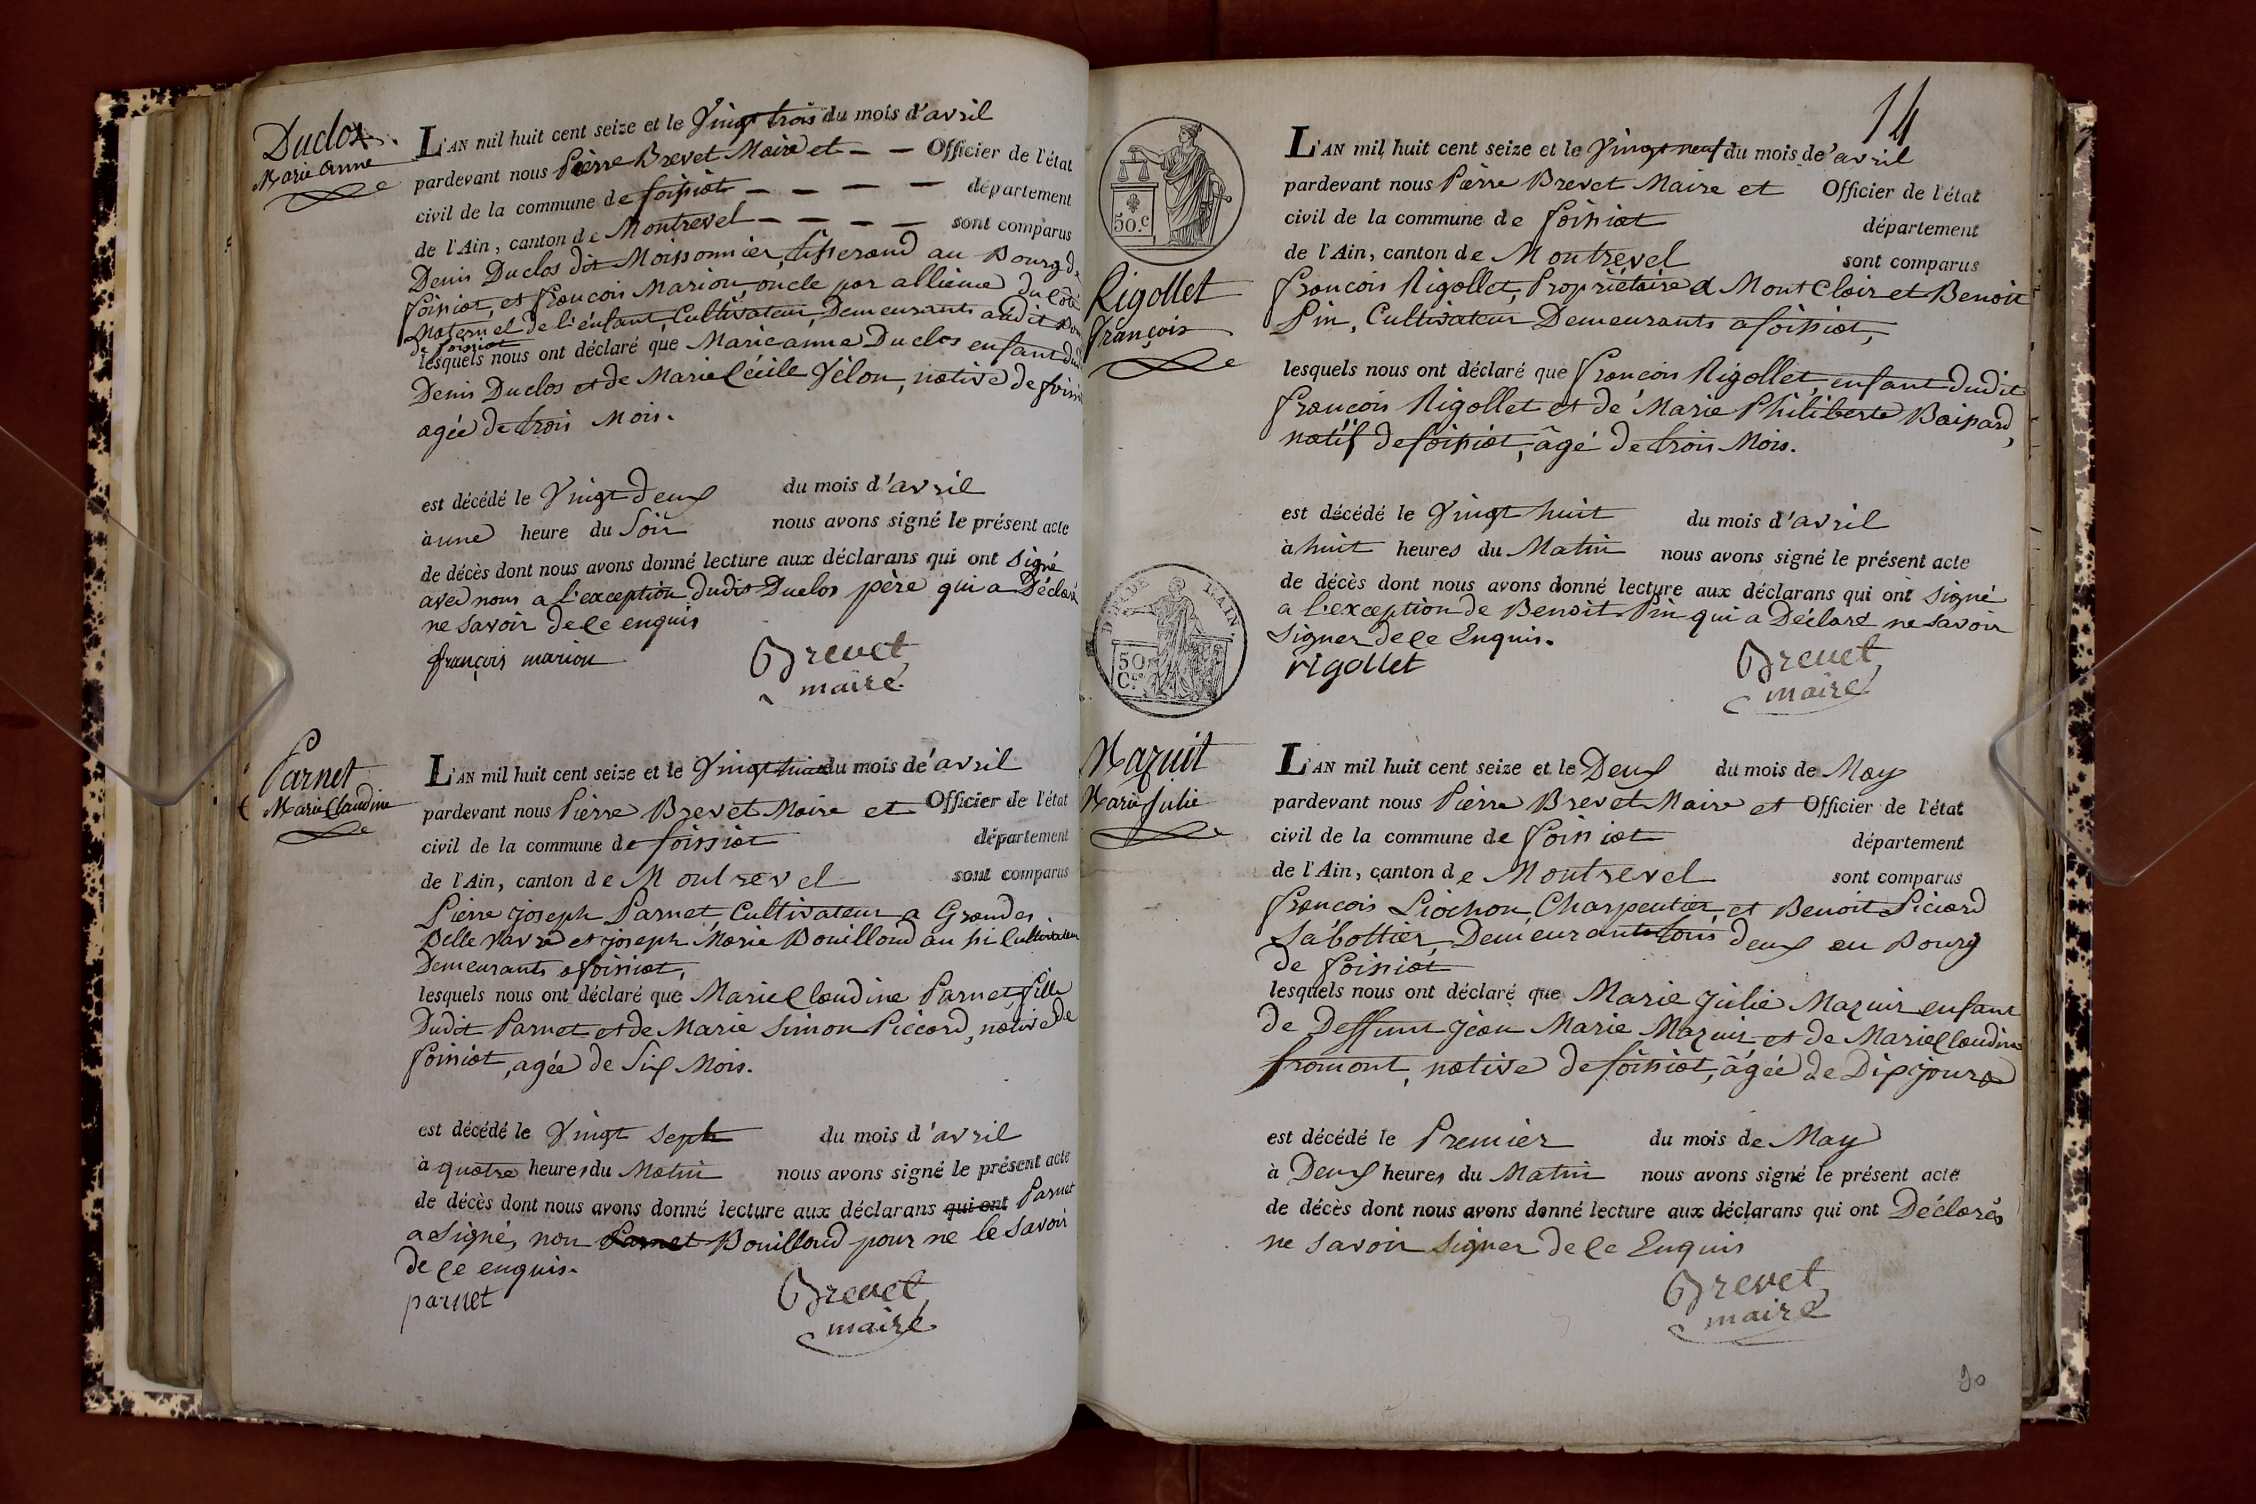 Duclos.
Marie Anne
L'AN mil huit cent seize et le Vingt trois du mois d'avril
pardevant nous Pierre Brevet Maire et — — Officier de l'état
civil de la commune de foissiat — — — — département
de l'Ain, canton de Montrevel — — — — sont comparus
Denis Duclos dit Moissonnier, tisserand au Bourg de
foissiat, et françois Marion, oncle par alliance du Côté
Maternel de l'enfant, Cultivateur, Demeurants audit
de foissiat
lesquels nous ont déclaré que Marie anne Duclos enfant dud
Denis Duclos et de Marie Cécile Vélon, native de foissia
agée de trois Mois.
est décédé le Vingt deux du mois d'avril
à une heure du Soir nous avons signé le présent acte
de décès dont nous avons donné lecture aux déclarans qui ont signé
avec nous a l'exception dudit Duclos père qui a Déclaré
ne savoir de ce enquis
françois marion
Brevet
maire
Parnet
Marie Claudine
L'AN mil huit cent seize et le Vingt huit du mois de avril
pardevant nous Pierre Brevet Maire et Officier de l'état
civil de la commune de foissiat département
de l'Ain, canton de Montrevel sont comparus
Pierre joseph Parnet, Cultivateur a Grandes
Belle Vavre et joseph Marie Bouilloud au pi Cultivateur
Demeurants a foissiat,
lesquels nous ont déclaré que Marie Claudine Parnet, fille
Dudit Parnet et de Marie Simon Piccard, native de
foissiat, agée de Six Mois.
est décédé le Vingt sept du mois d'avril
à quatre heures du Matin nous avons signé le présent acte
de décès dont nous avons donné lecture aux déclarans qui ont Parnet
a signé, non Parnet Bouilloud pour ne le savoir
de ce enquis.
parnet
Brevet
maire
14
50.c
Rigollet
françois
L'AN mil huit cent seize et le Vingt neuf du mois de avril
pardevant nous Pierre Brevet Maire et Officier de l'état
civil de la commune de foissiat département
de l'Ain, canton de Montrevel sont comparus
françois Rigollet, Propriétaire a Mont Clair et Benoit
Pin, Cultivateur Demeurants a foissiat,
lesquels nous ont déclaré que françois Rigollet, enfant dudit
françois Rigollet et de Marie Philiberte Boipard,
natif de foissiat, âgé de trois Mois.
est décédé le Vingt huit du mois d'avril
à huit heures du Matin nous avons signé le présent acte
de décès dont nous avons donné lecture aux déclarans qui ont signé
a l'exception de Benoit Pin qui a Déclaré ne savoir
signer de ce Enquis.
rigollet
Brevet
maire
DE L'AIN.
50
C.es
Mazuit
Marie Julie
L'AN mil huit cent seize et le Deux du mois de May
pardevant nous Pierre Brevet Maire et Officier de l'état
civil de la commune de foissiat département
de l'Ain, canton de Montrevel sont comparus
françois Liochon, Charpentier, et Benoit Piccard
Sabottier, Demeurants tous deux au Bourg
de foissiat
lesquels nous ont déclaré que Marie Julie Mazuir enfant
de Deffunt Jean Marie Mazuir et de Marie Claudine
fromont, native de foissiat, âgée de Dix jours
est décédé le Premier du mois de May
à Deux heures du Matin nous avons signé le présent acte
de décès dont nous avons donné lecture aux déclarans qui ont Déclarés
ne savoir signer de ce Enquis
Brevet
maire